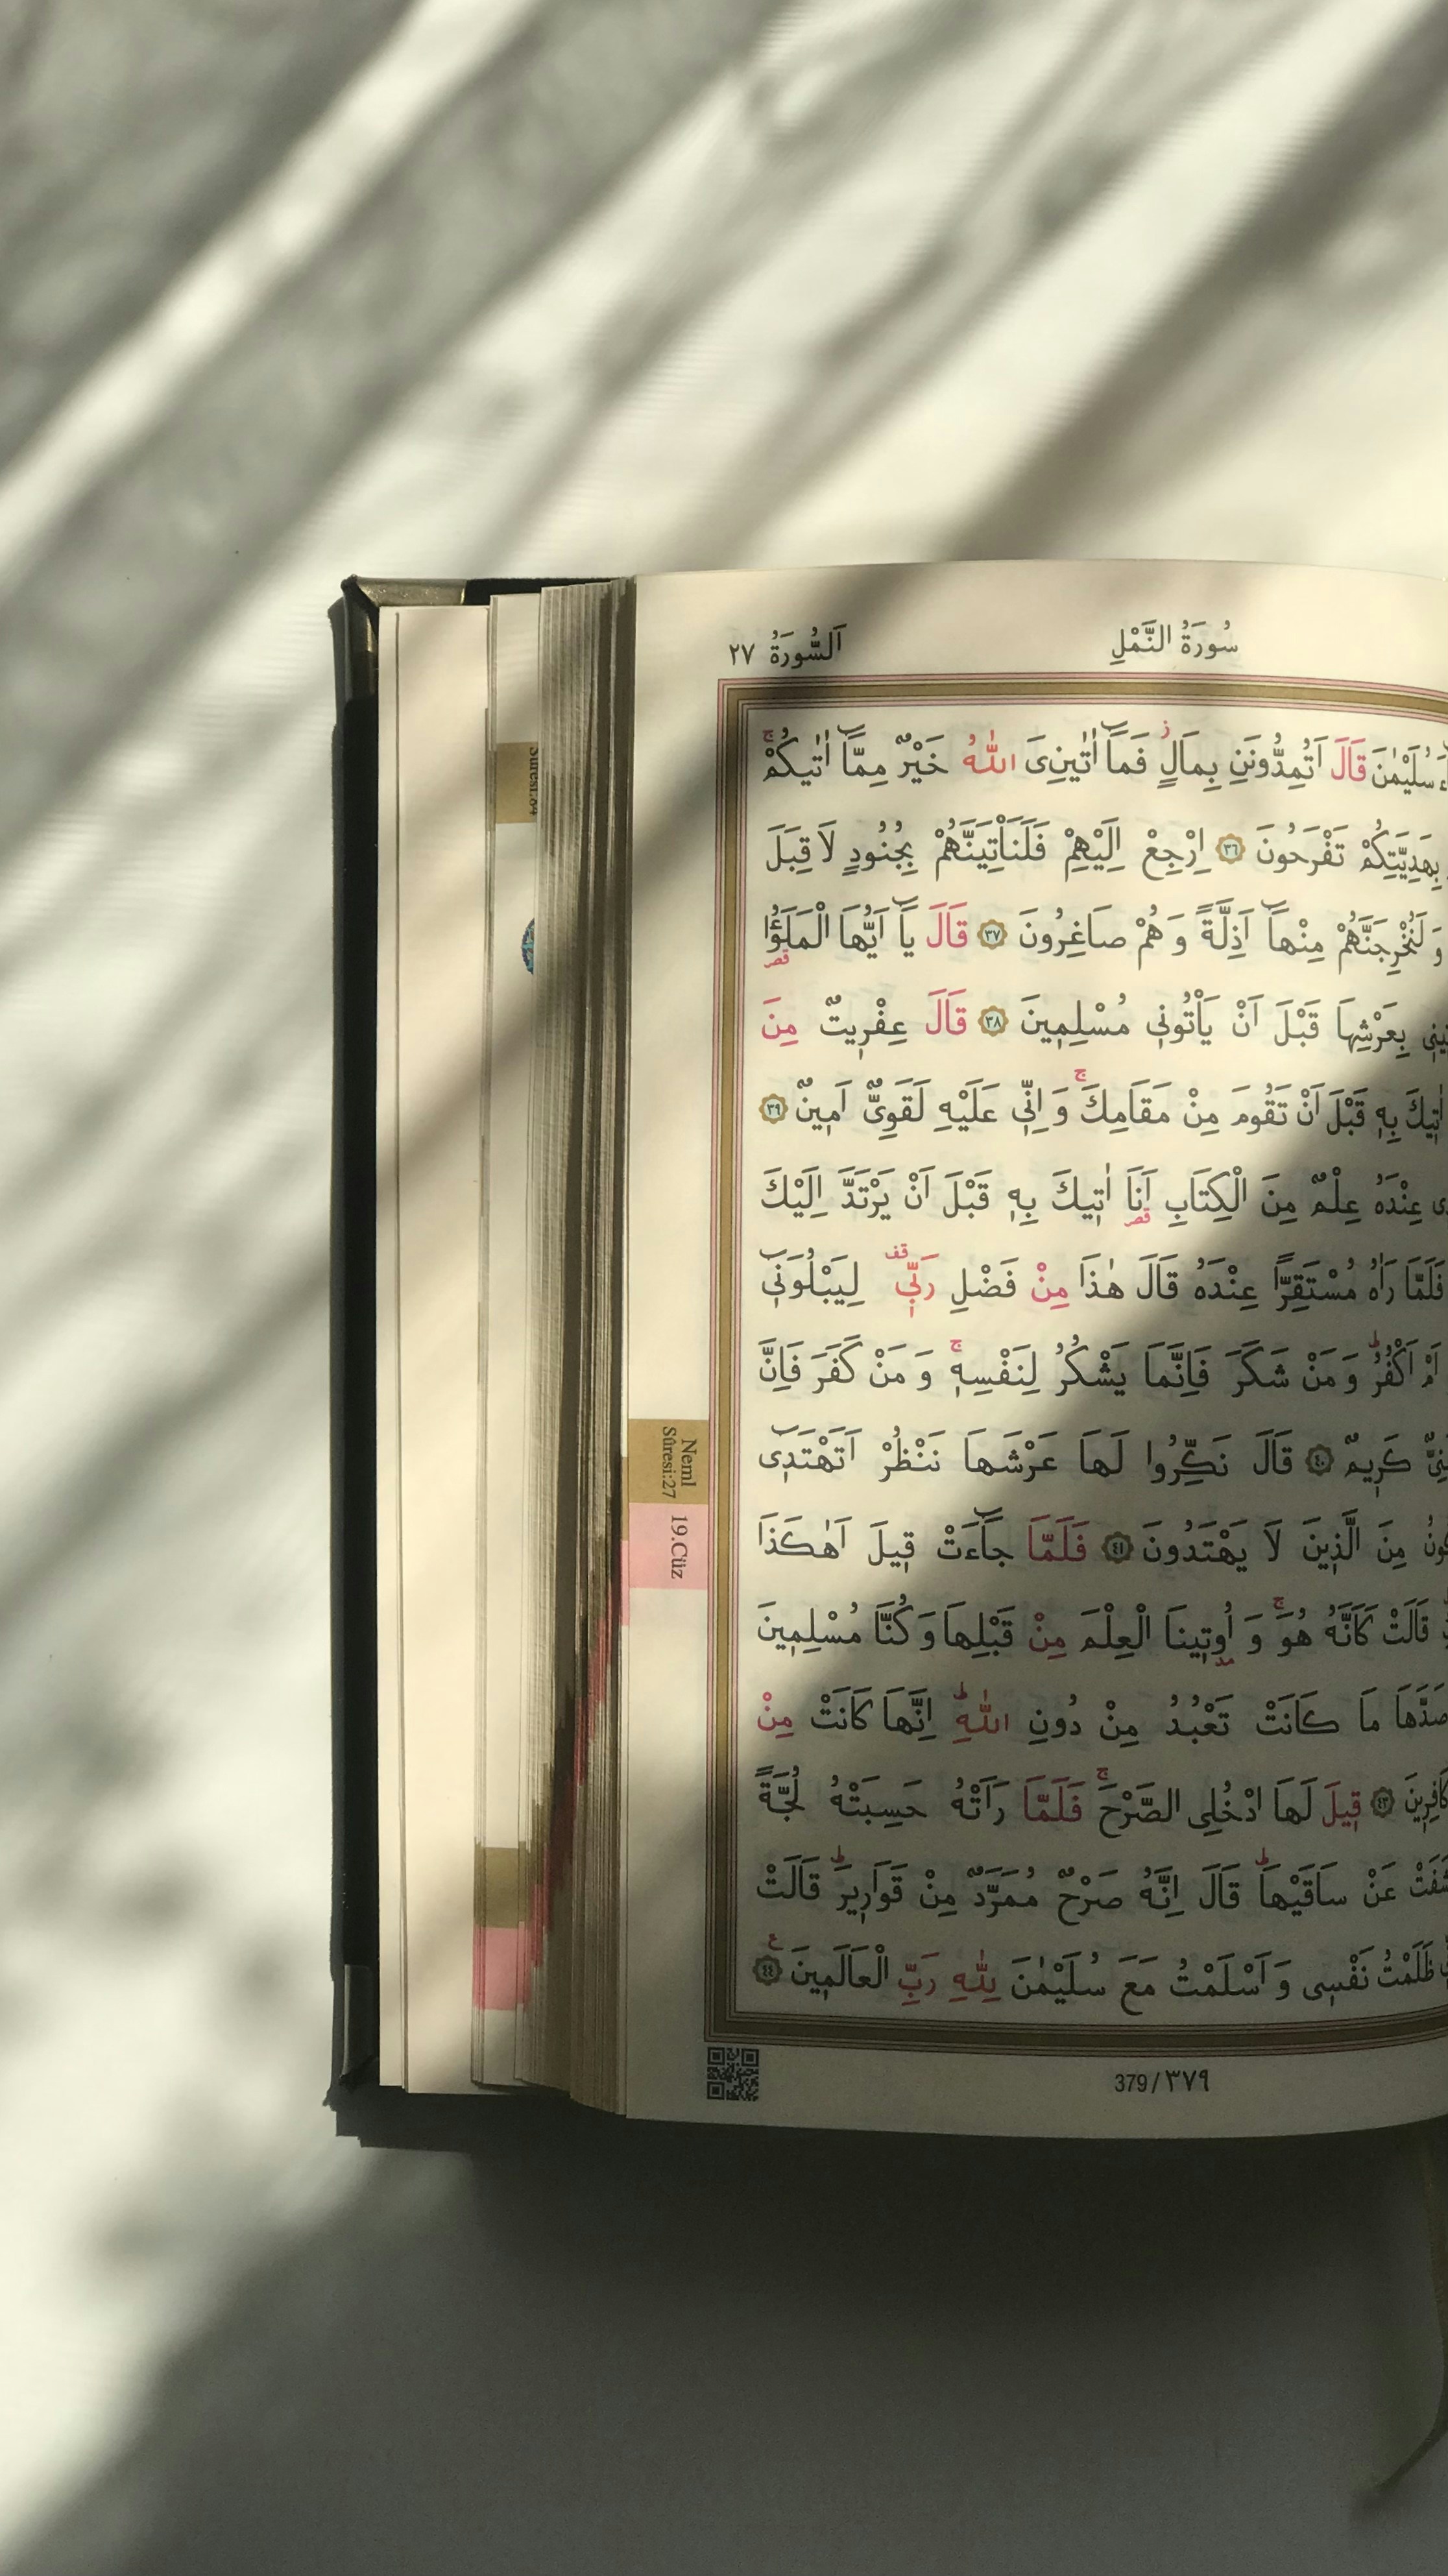 سُورَةُ النَّمْلِ
اَلسُّورَةُ ٢٧
سُلَيْمٰنَ قَالَ اَتُمِدُّونَنِ بِمَالٍۘ فَمَٓا اٰتٰينِىَ اللّٰهُ خَيْرٌ مِمَّٓا اٰتٰيكُمْۚ
بِهَدِيَّتِكُمْ تَفْرَحُونَ ﴿٣٦﴾ اِرْجِعْ اِلَيْهِمْ فَلَنَأْتِيَنَّهُمْ بِجُنُودٍ لَا قِبَلَ
وَلَنُخْرِجَنَّهُمْ مِنْهَٓا اَذِلَّةً وَهُمْ صَاغِرُونَ ﴿٣٧﴾ قَالَ يَٓا اَيُّهَا الْمَلَؤُا
بِعَرْشِهَا قَبْلَ اَنْ يَأْتُونٖى مُسْلِمٖينَ ﴿٣٨﴾ قَالَ عِفْرٖيتٌ مِنَ
اٰتٖيكَ بِهٖ قَبْلَ اَنْ تَقُومَ مِنْ مَقَامِكَۚ وَاِنّٖى عَلَيْهِ لَقَوِىٌّ اَمٖينٌ ﴿٣٩﴾
عِنْدَهُ عِلْمٌ مِنَ الْكِتَابِ اَنَا اٰتٖيكَ بِهٖ قَبْلَ اَنْ يَرْتَدَّ اِلَيْكَ
فَلَمَّا رَاٰهُ مُسْتَقِرًّا عِنْدَهُ قَالَ هٰذَا مِنْ فَضْلِ رَبّٖى لِيَبْلُوَنٖٓى
اَمْ اَكْفُرُؕ وَمَنْ شَكَرَ فَاِنَّمَا يَشْكُرُ لِنَفْسِهٖۚ وَمَنْ كَفَرَ فَاِنَّ
كَرٖيمٌ ﴿٤٠﴾ قَالَ نَكِّرُوا لَهَا عَرْشَهَا نَنْظُرْ اَتَهْتَدٖٓى
مِنَ الَّذٖينَ لَا يَهْتَدُونَ ﴿٤١﴾ فَلَمَّا جَٓاءَتْ قٖيلَ اَهٰكَذَا
قَالَتْ كَاَنَّهُ هُوَۚ وَاُوتٖينَا الْعِلْمَ مِنْ قَبْلِهَا وَكُنَّا مُسْلِمٖينَ
مَا كَانَتْ تَعْبُدُ مِنْ دُونِ اللّٰهِؕ اِنَّهَا كَانَتْ مِنْ
﴿٤٣﴾ قٖيلَ لَهَا ادْخُلِى الصَّرْحَۚ فَلَمَّا رَاَتْهُ حَسِبَتْهُ لُجَّةً
عَنْ سَاقَيْهَاؕ قَالَ اِنَّهُ صَرْحٌ مُمَرَّدٌ مِنْ قَوَارٖيرَؕ قَالَتْ
ظَلَمْتُ نَفْسٖى وَاَسْلَمْتُ مَعَ سُلَيْمٰنَ لِلّٰهِ رَبِّ الْعَالَمٖينَ ﴿٤٤﴾
Neml
Sûresi:27
19.Cüz
379/٣٧٩